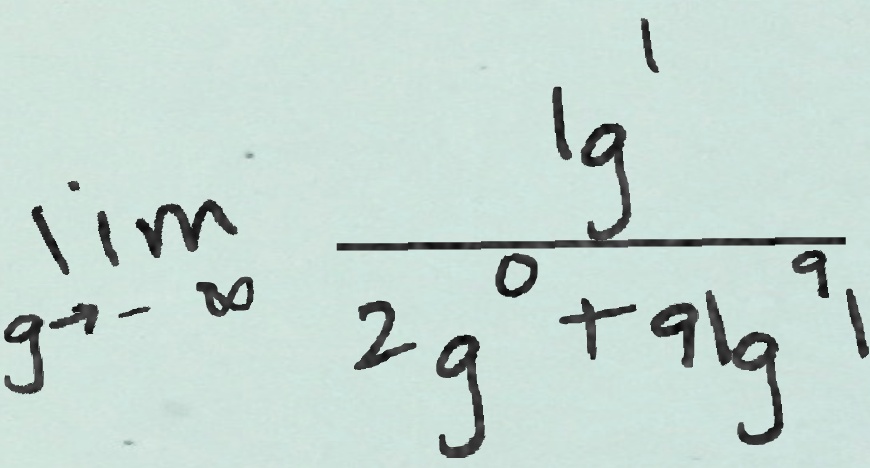 \lim_{g \to -\infty} \frac{1g^1}{2g^0 + 9|g^9|}